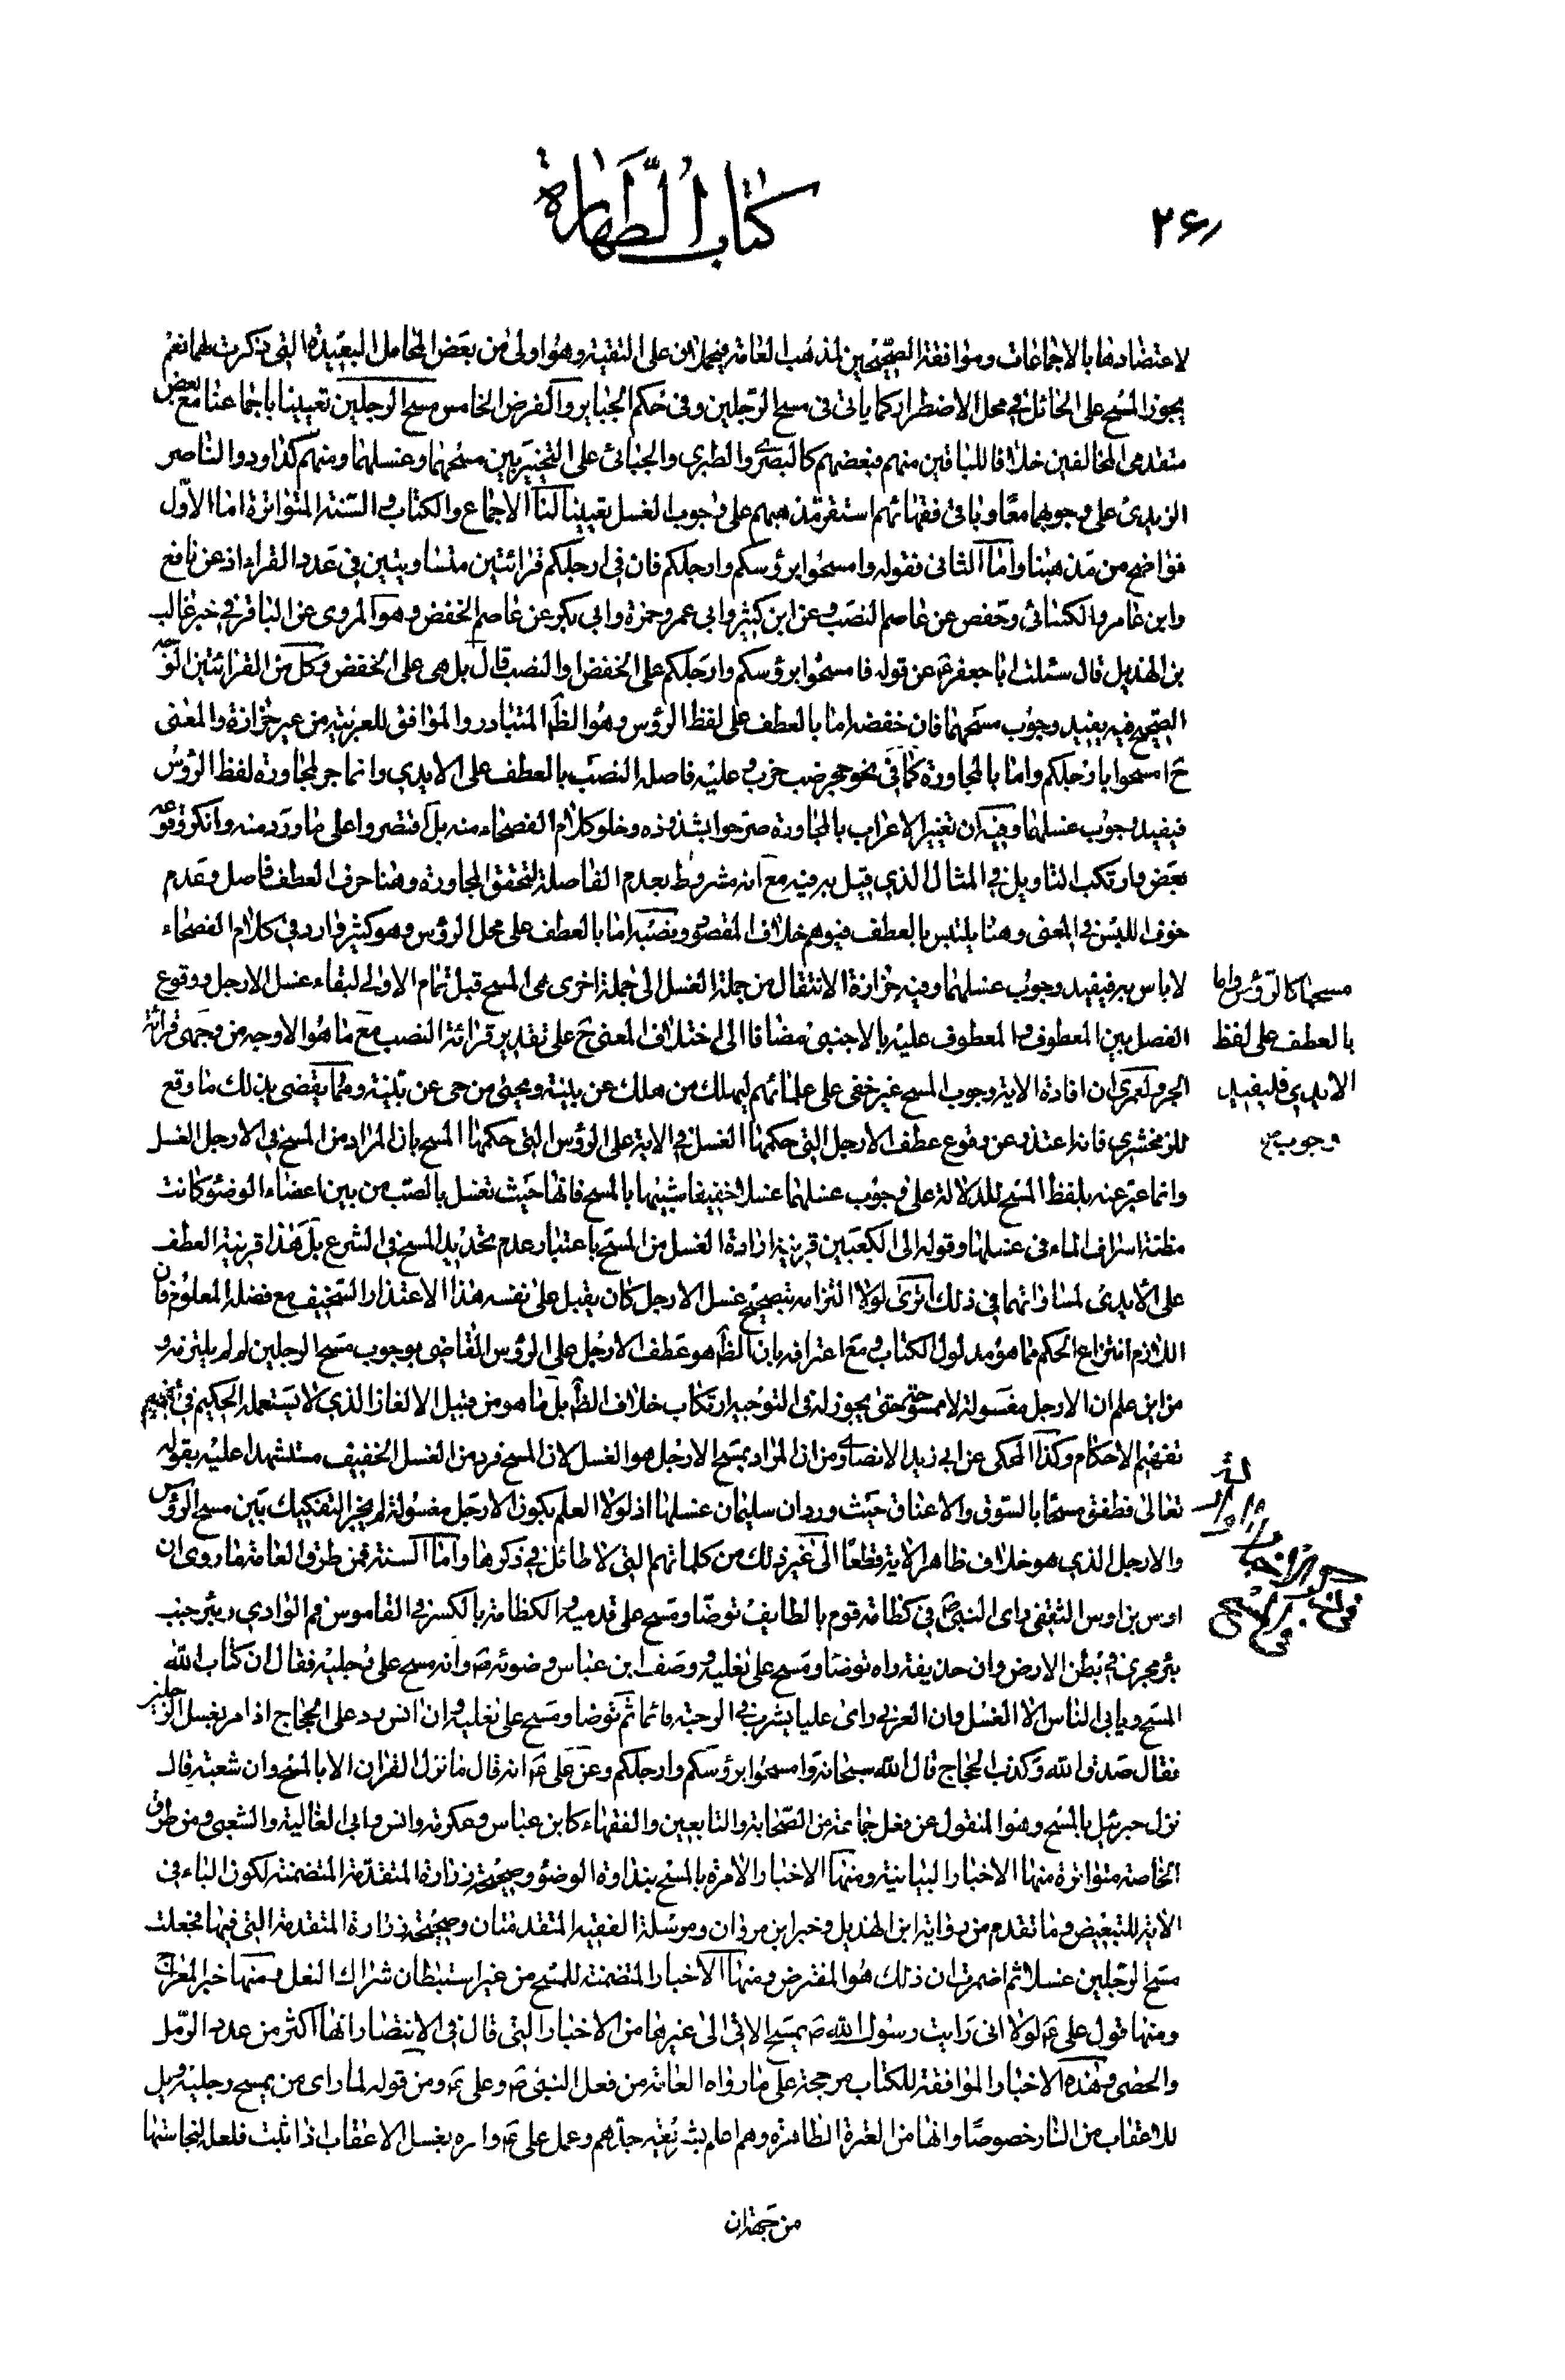 ۲۶
كتاب الطهارة
لاعتضادها بالاجماعات وموافقة الصحيحين لمذهب العامة فيحملان على التقية وهو اولى من بعض المحامل البعيدة التى ذكرت لهما نعم
يجوز المسح على الحائل في محل الاضطرار كما ياتى فى مسح الرجلين وفى حكم الجباير والفرض الخامس مسح الرجلين تعيينا باجماعنا مع بعض
متقدمى المخالفين خلافا للباقين منهم فبعضهم كالبصرى والطبرى والجبائى على التخيير بين مسحهما وغسلهما ومنهم كداود والناصر
الزيدى على وجوبهما معًا وباقى فقهائهم استقر مذهبهم على وجوب الغسل تعيينا لنا الاجماع والكتاب والسنة المتواترة اما الاوّل
فواضح من مذهبنا واما الثانى فقوله وامسحوا برؤسكم وارجلكم فان فى ارجلكم قرائتين متساويتين فى عدد القراء اذ عن نافع
وابن عامر والكسائى وحفص عن عاصم النصب وعن ابن كثير وابى عمرو حمزة وابى بكر عن عاصم الخفض وهو المروى عن الباقر فى خبر غالب
بن الهذيل قال سئلت ابا جعفر ع عن قوله فامسحوا برؤسكم وارجلكم على الخفض او النصب قال بل هى على الخفض وكل من القرائتين الوجه
الصحيح فيه يفيد وجوب مسحهما فان خفضه اما بالعطف على لفظ الرؤس وهو الظ المتبادر والموافق للعربية من غير حزازة والمعنى
ح امسحوا بارجلكم واما بالمجاورة كما فى نحو حجر ضب خرب وعليه فاصله النصب بالعطف على الايدى وانما جر لمجاورة لفظ الرؤس
فيفيد وجوب غسلهما وفيه ان تغيير الاعراب بالمجاورة صرحوا بشذوذه وخلو كلام الفصحاء منه بل اقتصروا على ما ورد منه وانكر وقوعه
بعض وارتكب التاويل في المثال الذى قيل به فيه مع انه مشروط بعدم الفاصلة لتحقق المجاورة وهنا حرف العطف فاصل وعدم
خوف اللبس فى المعنى وهنا يلتبس بالعطف فيوهم خلاف المقصود ونصبه اما بالعطف على محل الرؤس وهو كثير وارد فى كلام الفصحاء
لا باس به فيفيد وجوب غسلهما وفيه حزازة الانتقال من جملة الغسل الى جملة اخرى هى المسح قبل تمام الاولى لبقاء غسل الارجل ووقوع
الفصل بين المعطوف والمعطوف عليه بالاجنبى مضافا الى اختلاف المعنى ح على تقدير قرائة النصب مع ما هو الاوجه من وجهى قرائة
الجر ولعمرى ان افادة الاية وجوب المسح غير خفى على علمائهم ليهلك من هلك عن بينة ويحيى من حى عن بينة ومما يقضى بذلك ما وقع
للزمخشرى فانه اعتذر عن وقوع عطف الارجل التى حكمها الغسل فى الاية على الرؤس التى حكمها المسح بان المراد من المسح فى الارجل الغسل
وانما عبر عنه بلفظ المسح للدلالة على وجوب غسلهما غسلا خفيفا شبيها بالمسح فانها حيث تغسل بالصب من بين اعضاء الوضوء كانت
مظنة اسراف الماء فى غسلها وقوله الى الكعبين قرينة ارادة الغسل من المسح باعتبار عدم تحديد المسح فى الشرع بل هذا قرينة العطف
على الايدى لمساواتهما فى ذلك اترى لولا التزامه بتصحيح غسل الارجل كان يقبل على نفسه هذا الاعتذار السخيف مع فضله المعلوم فان
اللازم انتزاع الحكم مما هو مدلول الكتاب ومع اعترافه بان الظ هو عطف الارجل على الرؤس القاضى بوجوب مسح الرجلين لم لم يلتزمه و
من اين علم ان الارجل مغسولة لا ممسوحة حتى يجوز له فى التوجيه ارتكاب خلاف الظ بل ما هو من قبيل الالغاز الذى لا يستعمله الحكيم فى
تفهيم الاحكام وكذا المحكى عن ابى زيد الانصارى من ان المراد بمسح الارجل هو الغسل لان المسح فرد من الغسل الخفيف مستشهدا عليه بقوله
تعالى فطفق مسحا بالسوق والاعناق حيث ورد ان سليمان غسلها اذ لولا العلم بكون الارجل مغسولة لم يجز التفكيك بين مسح الرؤس
والارجل الذى هو خلاف ظاهر الاية قطعًا الى غير ذلك من كلماتهم التى لا طائل فى ذكرها واما السنة فمن طرق العامة ما روى ان
اوس بن اوس الثقفى راى النبى ص فى كظامة قوم بالطايف توضا ومسح على قدميه والكظامة بالكسر فى القاموس فم الوادى وبئر جنب
بئر مجرى فى بطن الارض وان حذيفة راه توضا ومسح على نعليه ووصف ابن عباس وضوئه ص وانه مسح على رجليه فقال ان كتاب الله
المسح ويابى الناس الا الغسل وان راى عليا يشرب فى الرحبة قائما ثم توضا ومسح على نعليه وان انس رد على الحجاج اذ امر بغسل الرجلين
فقال صدق الله وكذب الحجاج قال الله سبحانه وامسحوا برؤسكم وارجلكم وعن على ع انه قال ما نزل القران الا بالمسح وان شعبة قال
نزل جبرئيل بالمسح وهو المنقول عن فعل جماعة من الصحابة والتابعين والفقهاء كابن عباس وعكرمة وانس وابى العالية والشعبى ومن طرق
الخاصة متواترة منها الاخبار البيانية ومنها الاخبار الامرة بالمسح بنداوة الوضوء وصحيحة زرارة المتقدمة المتضمنة لكون الباء فى
الاية للتبعيض وما تقدم من رواية ابن الهذيل وخبر ابن مروان ومرسلة الفقيه المتقدمتان وصحيحة زرارة المتقدمة التى فيها فجعلت
مسح الرجلين غسلا ثم اضمرت ان ذلك هو المفترض ومنها الاخبار المتضمنة للمسح من غير استبطان شراك النعل ومنها خبر
ومنها قول على ع لولا انى رايت رسول الله ص يمسح الاتى الى غيرها من الاخبار التى قال فى الانتصار انها اكثر من عدد الرمل
والحصى وهذه الاخبار الموافقة للكتاب مرجحة على ما رواه العامة من فعل النبى ص وعلى ع ومن قوله لما راى من يمسح رجليه ويل
للاعقاب من النار خصوصًا وانها من العترة الطاهرة وهم اعلم بشريعة جدهم وعمل على ع وامره بغسل الاعقاب اذا ثبت فلعل لنجاستها
من جهة ان
مسحهما كالرؤس واما
بالعطف على لفظ
الايدى فليفيد
وجوب